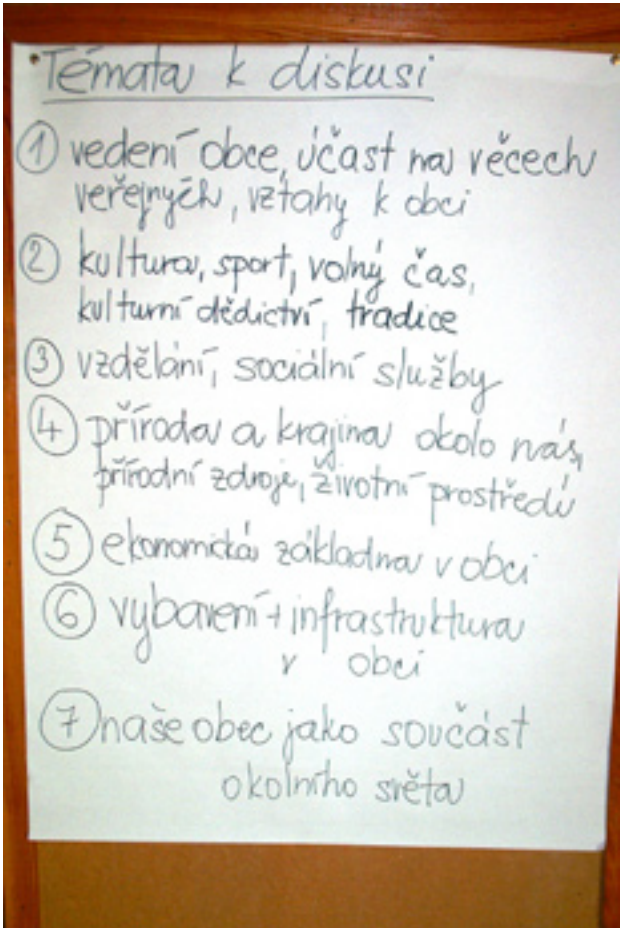 Témata k diskusi
① vedení obce, účast na věcech
veřejných, vztahy k obci
② kultura, sport, volný čas,
kulturní dědictví, tradice
③ vzdělání, sociální služby
④ příroda a krajina okolo nás,
přírodní zdroje, životní prostředí
⑤ ekonomická základna v obci
⑥ vybavení + infrastruktura
v obci
⑦ naše obec jako součást
okolního světa